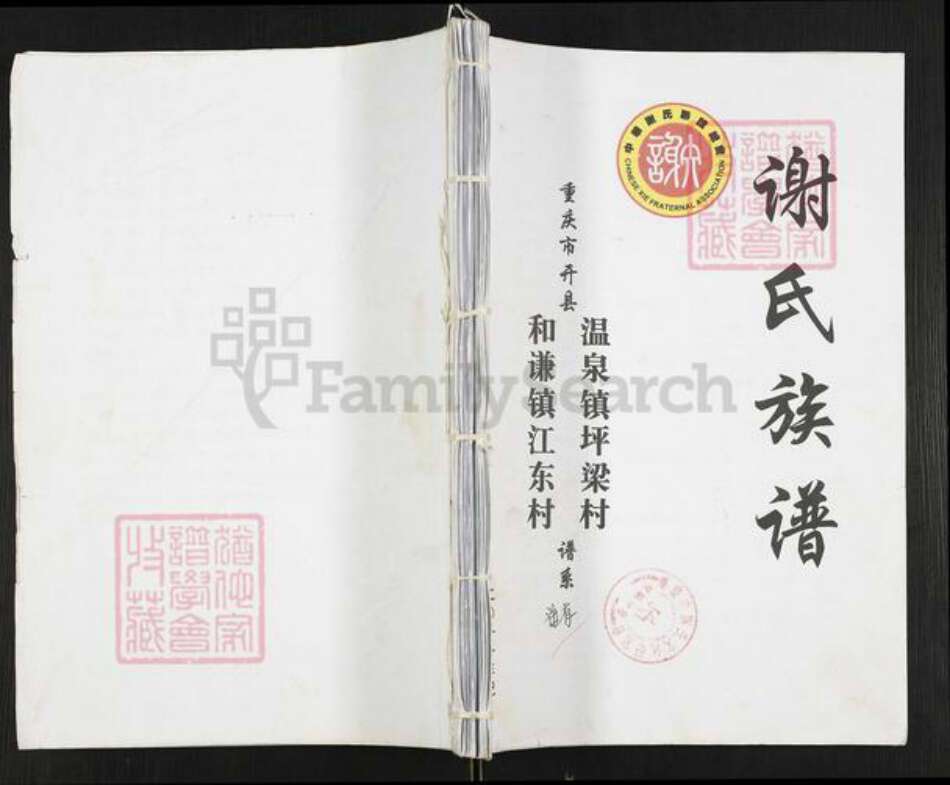 谢氏族谱
中華謝氏聯誼總會
謝
CHINESE XIE FRATERNAL ASSOCIATION
重庆市开县
温泉镇坪梁村
和谦镇江东村
谱系
FamilySearch
譜學會
收藏